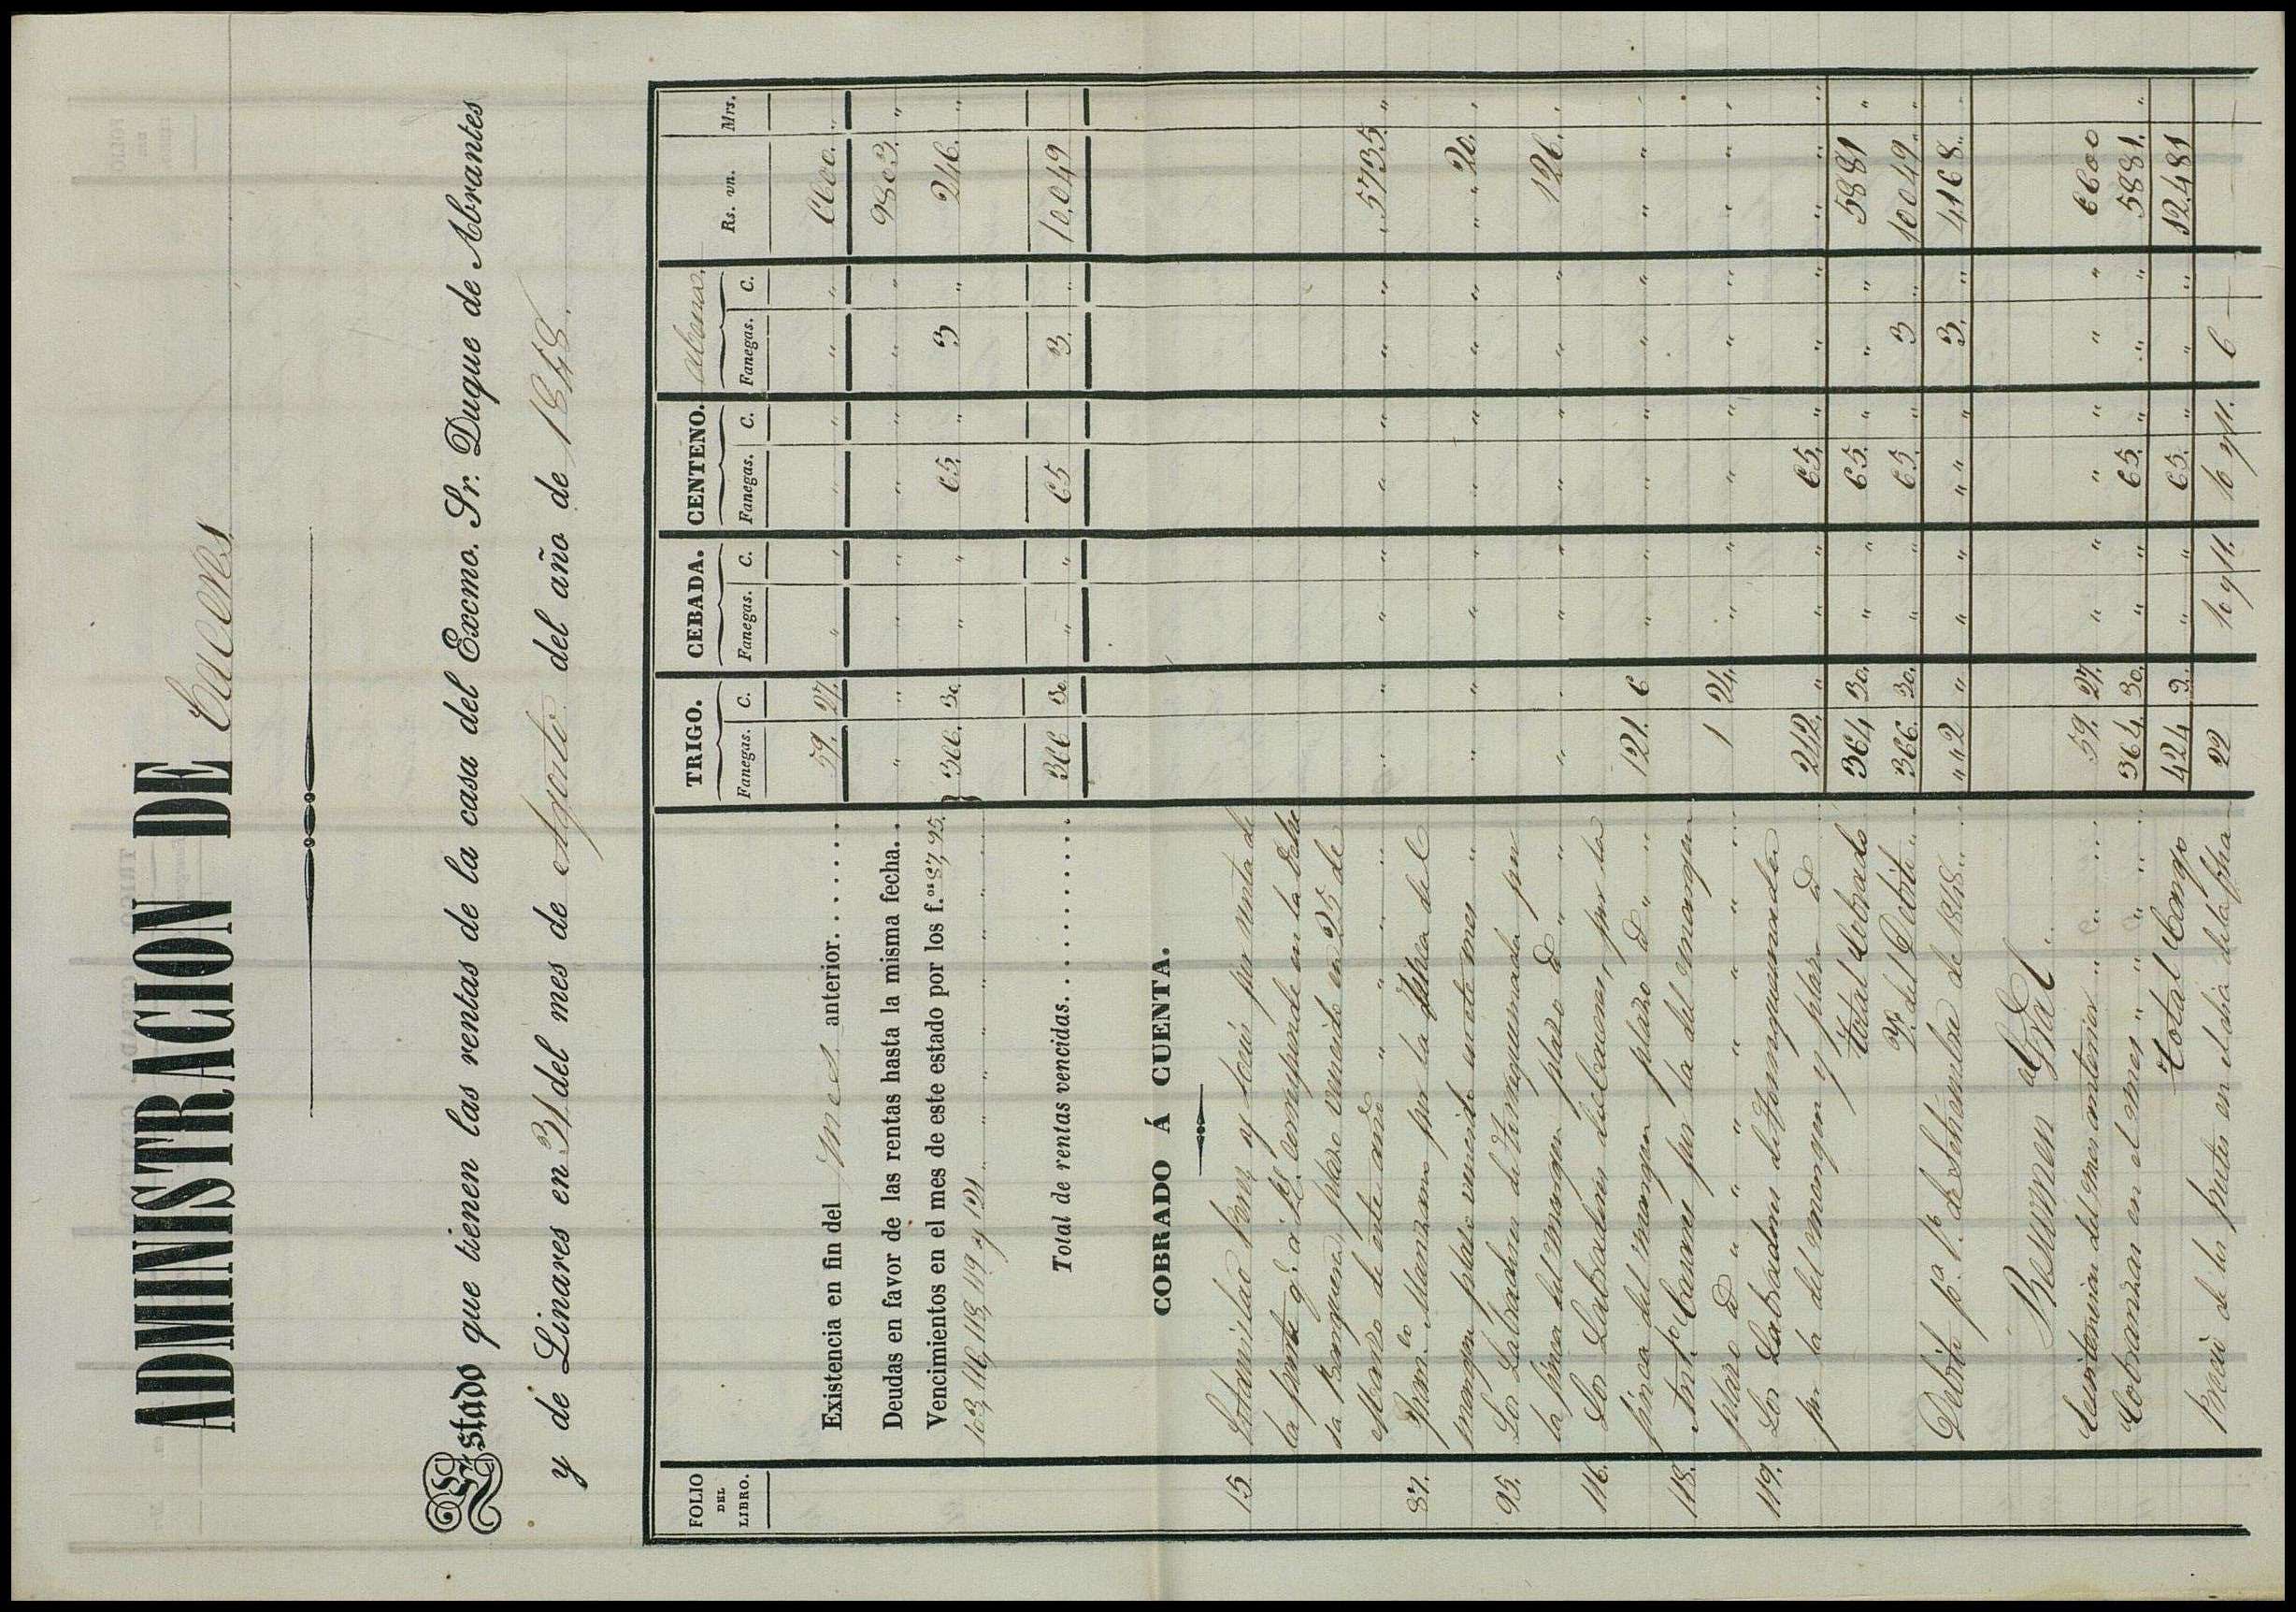 ADMINISTRACION DE Caceres
Estado que tienen las rentas de la casa del Excmo. Sr. Duque de Abrantes
y de Linares en 31 del mes de Agosto del año de 1848.
FOLIO DEL LIBRO. TRIGO. CEBADA. CENTENO.
Fanegas. C. Fanegas. C. Fanegas. C. Fanegas. C. Rs. vn. Mrs.
Existencia en fin del mes anterior....... 59. 27. " " " " " " 6600. "
Deudas en favor de las rentas hasta la misma fecha.. " " " " " " " " 9803. "
Vencimientos en el mes de este estado por los f.os 87, 95,
103, 116, 118, 119 y 121 " " " " " 366. 30. " " 65. " 3 " 246. "
Total de rentas vencidas.......... 366 30 " " 65 3. " 10,049
COBRADO Á CUENTA.
15. Estanislao Perez y socios por renta de
la parte q.e á S.E. corresponde en la Dehe
sa plazo vencido en 25 de
Marzo de este año " " " " " " " " " " " " 5735. "
87. Fran.co Manzano por la finca del
margen plazo vencido en este mes " " " " " " " " " " 20. "
95. Los Labradores de por
la finca del margen plazo id " " " " " " " " " " 126. "
116. Los Labradores por la
finca del margen plazo id " " 121. 6 " " " " " " " "
118. Ant.o por la del margen
plazo id " " " " " " 1 24. " " " " " " " "
119. Los Labradores de
por la del margen y plazo id 242. " " " 65. " " " " "
Total Cobrado 364 30. " " 65. " " " 5881 "
Y.d del Debito " 366. 30. " " 65. " 3 " 10049. "
Debito p.a 1.o de Setiembre de 1848 " " 2 " " " " " 3. " 4168. "
Resumen al
Existencia del mes anterior " " " 59. 27. " " " " " " 6600
Cobranzas en el mes " " " " 364. 30. " " 65. " " " 5881. "
Total Cargo 424 2. " " 65. " " " 12,481
Precio de los frutos en el dia de la fha 22 10 y 11. 10 y 11. 6 —